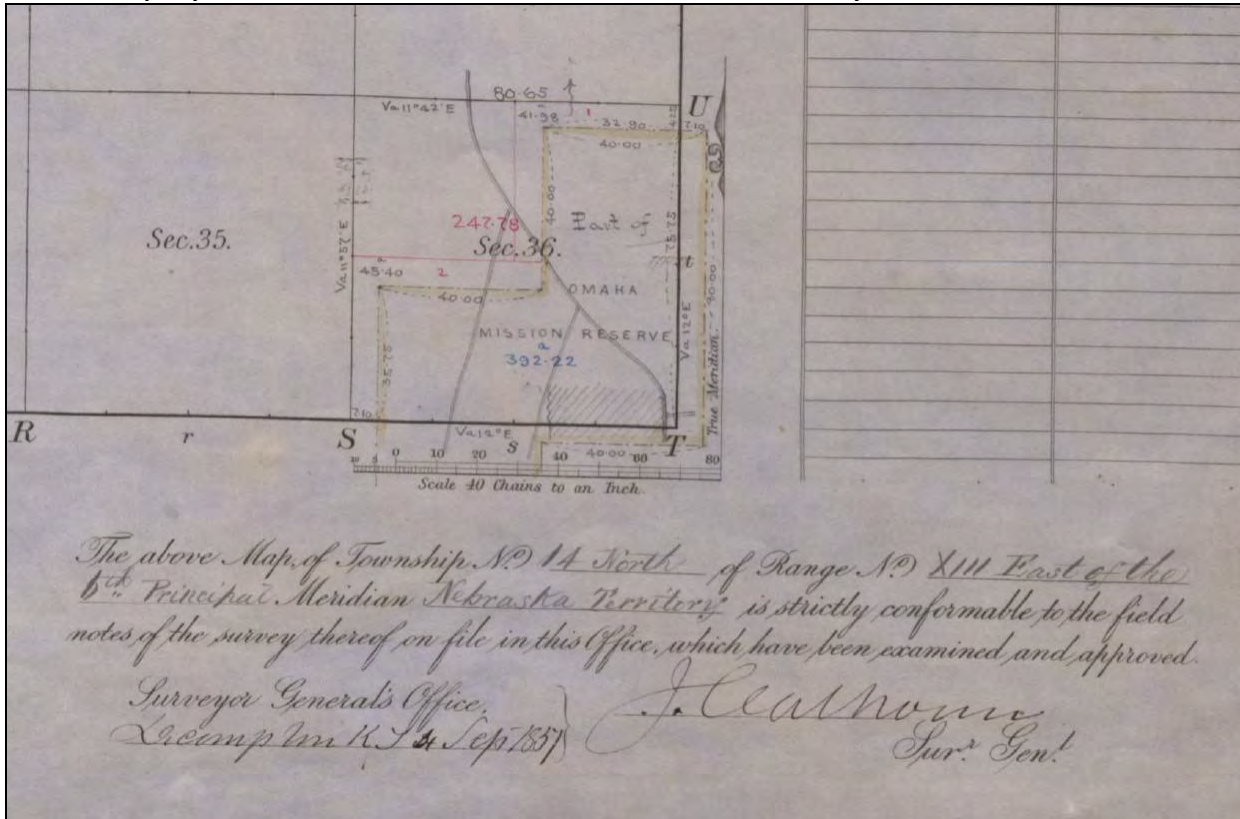 U
Va 11°42'E
80.65
41.98
1
32.80
7.10
40.00
40.00
Sec. 35.
247.78
Sec. 36.
75.75
t
Va 11°57'E
45.40
2
40.00
OMAHA
MISSION RESERVE
a
392.22
35.75
Va 12°E
True Meridian.
7.10
R
r
S
Va 12°E
s
T
10 5 0 10 20 40 40.00 60 80
Scale 40 Chains to an Inch.
The above Map, of Township No. 14 North of Range No. XIII East of the
6th Principal Meridian Nebraska Territory is strictly conformable to the field
notes of the survey thereof on file in this Office, which have been examined and approved.
Surveyor General's Office,
Lecompton K.T. 4 Sep 1857
J. Calhoun
Surr. Genl.